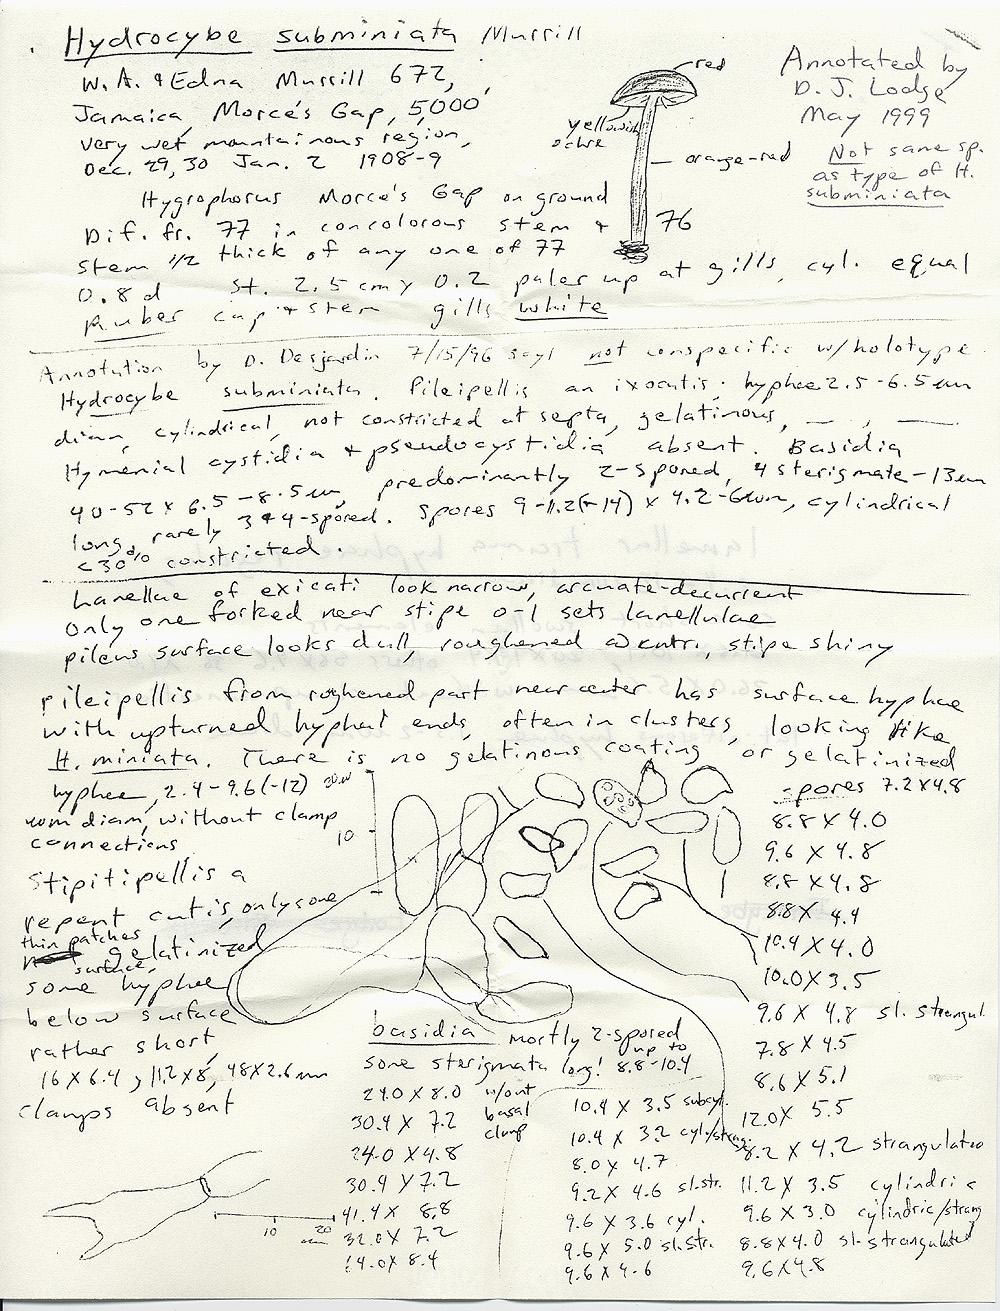 Hydrocybe subminiata Murrill
W. A. & Edna Murrill 672,
Jamaica, Morce's Gap, 5,000'
very wet mountainous region,
Dec. 29, 30 Jan. 2 1908-9
red
yellowish
ochre
orange-red
Annotated by
D. J. Lodge
May 1999
Not same sp.
as type of H.
subminiata
Hygrophorus Morce's Gap on ground
Dif. fr. 77 in concolorous stem & 76
stem 1/2 thick of any one of 77
0.8 d St. 2.5 cm x 0.2 paler up at gills, cyl. equal
Ruber cap & stem gills white
Annotation by D. Desjardin 7/15/96 says not conspecific w/holotype
Hydrocybe subminiata. Pileipellis an ixocutis; hyphae 2.5-6.5 um
diam, cylindrical, not constricted at septa, gelatinous, — , —
Hymenial cystidia & pseudocystidia absent. Basidia
40-52 x 6.5-8.5 um, predominantly 2-spored, 4 sterigmate -13um
long, rarely 3 & 4-spored. Spores 9-11.2(-14) x 4.2-6um, cylindrical
<30% constricted.
Lamellae of exicati look narrow, arcuate-decurrent
Only one forked near stipe 0-1 sets lamellulae
pileus surface looks dull, roughened @ centr, stipe shiny
Pileipellis from roghened part near center has surface hyphae
with upturned hyphal ends, often in clusters, looking like
H. miniata. There is no gelatinous coating or gelatinized
hyphae, 2.4-9.6(-12)
um diam, without clamp
connections
Stipitipellis a
repent cutis, only some
thin patches
gelatinized
surface,
some hyphae
below surface
rather short,
16 x 6.4, 11.2x8, 48x2.6 um
clamps absent
10
basidia mostly 2-spored
some sterigmata long! up to 8.8-10.4
24.0 x 8.0 w/out
30.4 x 7.2 basal
24.0 x 4.8 clamp
30.4 x 7.2
41.4 x 8.8
32.0 x 7.2
24.0 x 8.4
10
20
um
10.4 x 3.5 subcyl.
10.4 x 3.2 cyl/strang.
8.0 x 4.7
9.2 x 4.6 sl.str.
9.6 x 3.6 cyl.
9.6 x 5.0 sl.str.
9.6 x 4.6
spores 7.2x4.8
8.8 x 4.0
9.6 x 4.8
8.8 x 4.8
8.8 x 4.4
10.4 x 4.0
10.0 x 3.5
9.6 x 4.8 sl. strangul.
7.8 x 4.5
8.6 x 5.1
12.0 x 5.5
8.2 x 4.2 strangulated
11.2 x 3.5 cylindric
9.6 x 3.0 cylindric/strang
8.8x4.0 sl. strangulated
9.6x4.8